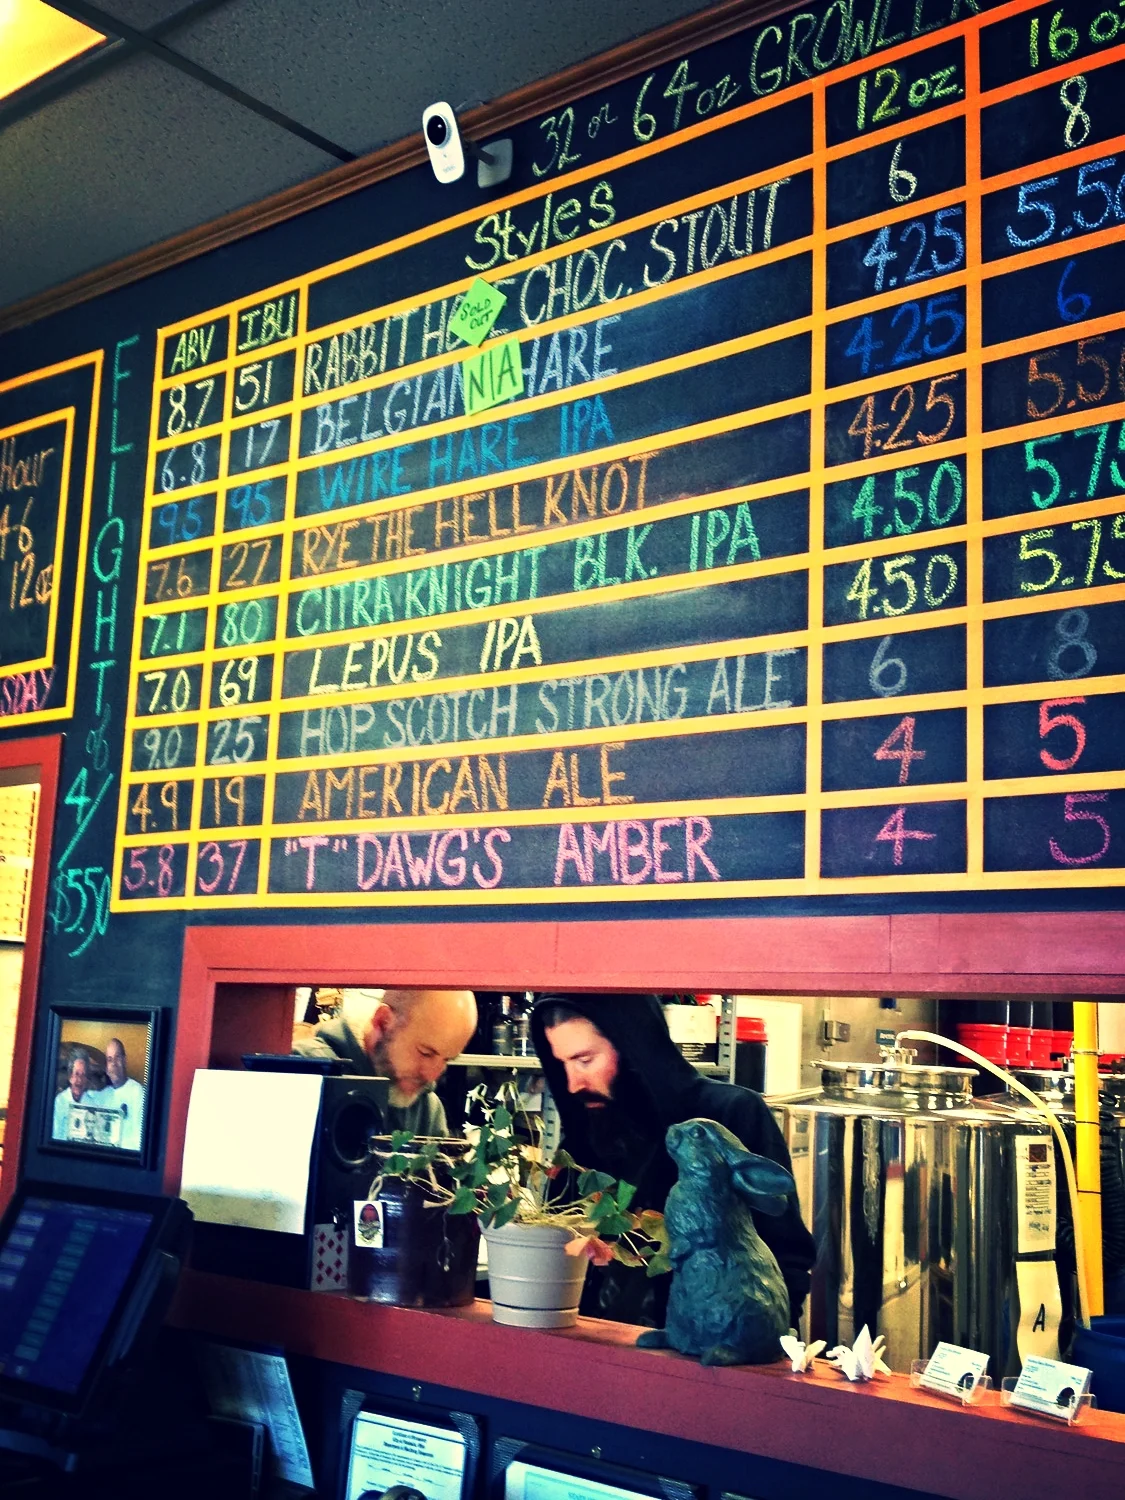 32 or 64 oz GROWLER
ABV IBU Styles 12 oz. 16 oz
8.7 51 RABBIT HOLE CHOC. STOUT 6 8
SOLD OUT
6.8 17 BELGIAN HARE 4.25 5.50
N/A
9.5 95 WIRE HARE IPA 4.25 6
7.6 27 RYE THE HELL KNOT 4.25 5.50
7.1 80 CITRA KNIGHT BLK. IPA 4.50 5.75
7.0 69 LEPUS IPA 4.50 5.75
9.0 25 HOP SCOTCH STRONG ALE 6 8
4.9 19 AMERICAN ALE 4 5
5.8 37 "T" DAWG'S AMBER 4 5
FLIGHT
4/
$5.50
Hour
4-6
12oz
SDAY
A